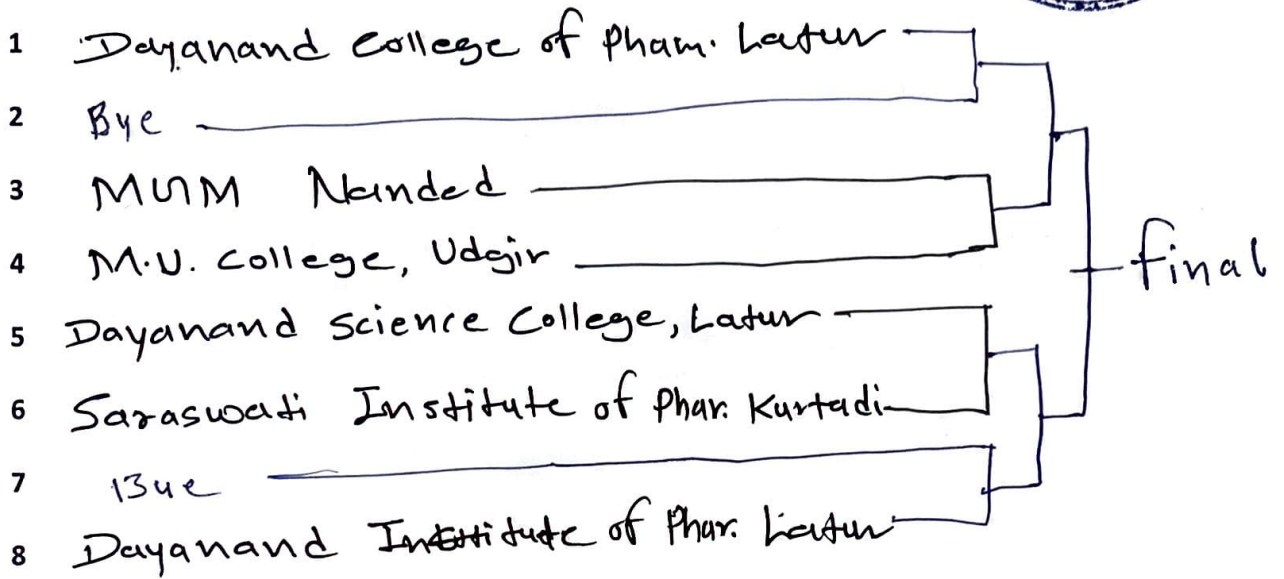 1 Dayanand College of Pham. Latur
2 Bye
3 MUM Nanded
4 M.U. College, Udgir
5 Dayanand Science College, Latur
6 Saraswati Institute of Phar. Kurtadi
final
7 Bye
8 Dayanand Institute of Phar. Latur